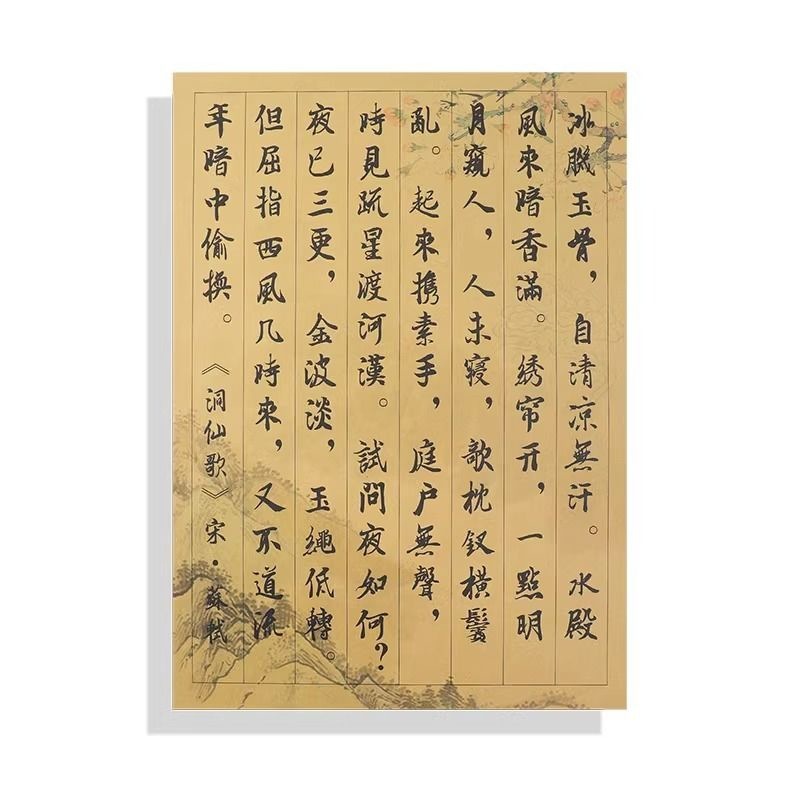 冰肌玉骨，自清凉無汗。水殿
風來暗香滿。綉帘开，一點明
月窺人，人未寢，歌枕釵橫鬢
亂。起來携素手，庭户無聲，
時見疏星渡河漢。試問夜如何？
夜已三更，金波淡，玉繩低轉。
但屈指西風几時來，又不道流
年暗中偷換。《洞仙歌》宋·蘇軾